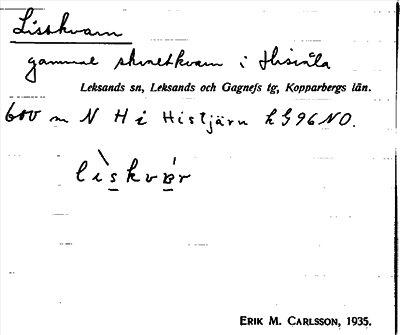 Lisskvarn
gammal skvaltkvarn i Hisvåla
Leksands sn, Leksands och Gagnefs tg, Kopparbergs län.
600 m N H i Histjärn k § 96 NO.
ERIK M. CARLSSON, 1935.